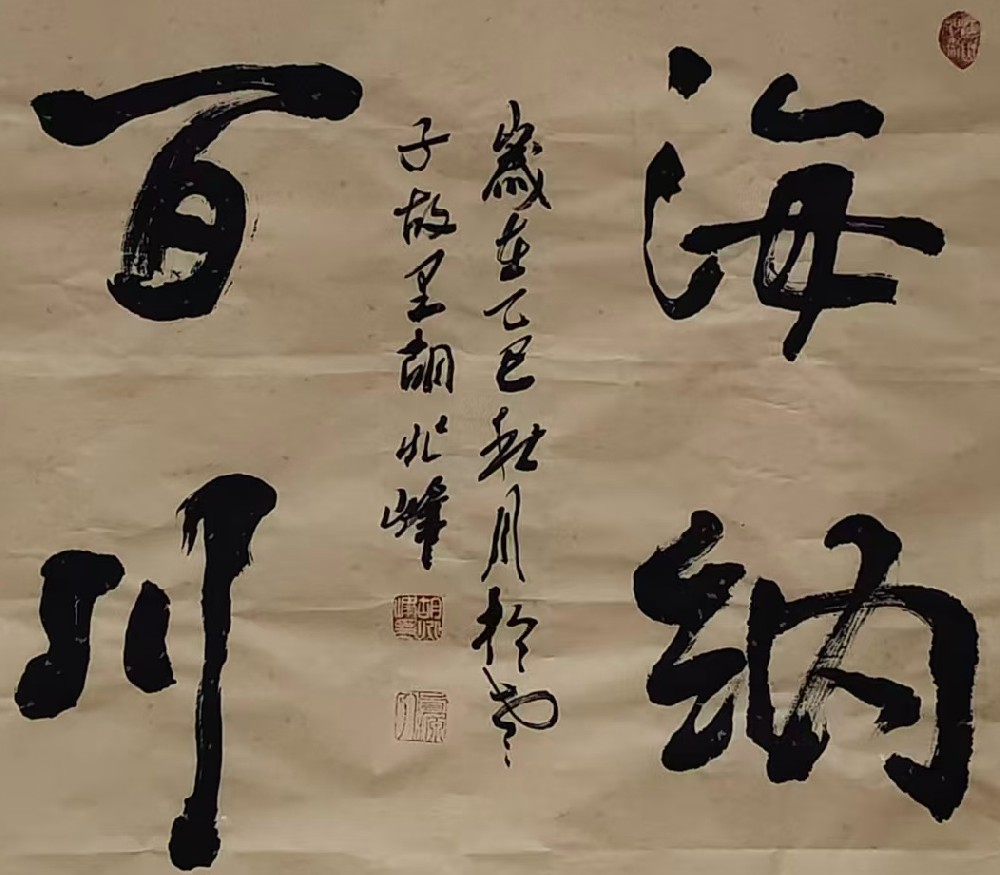 海納
百川
歲在乙巳秋月於老
子故里胡峰